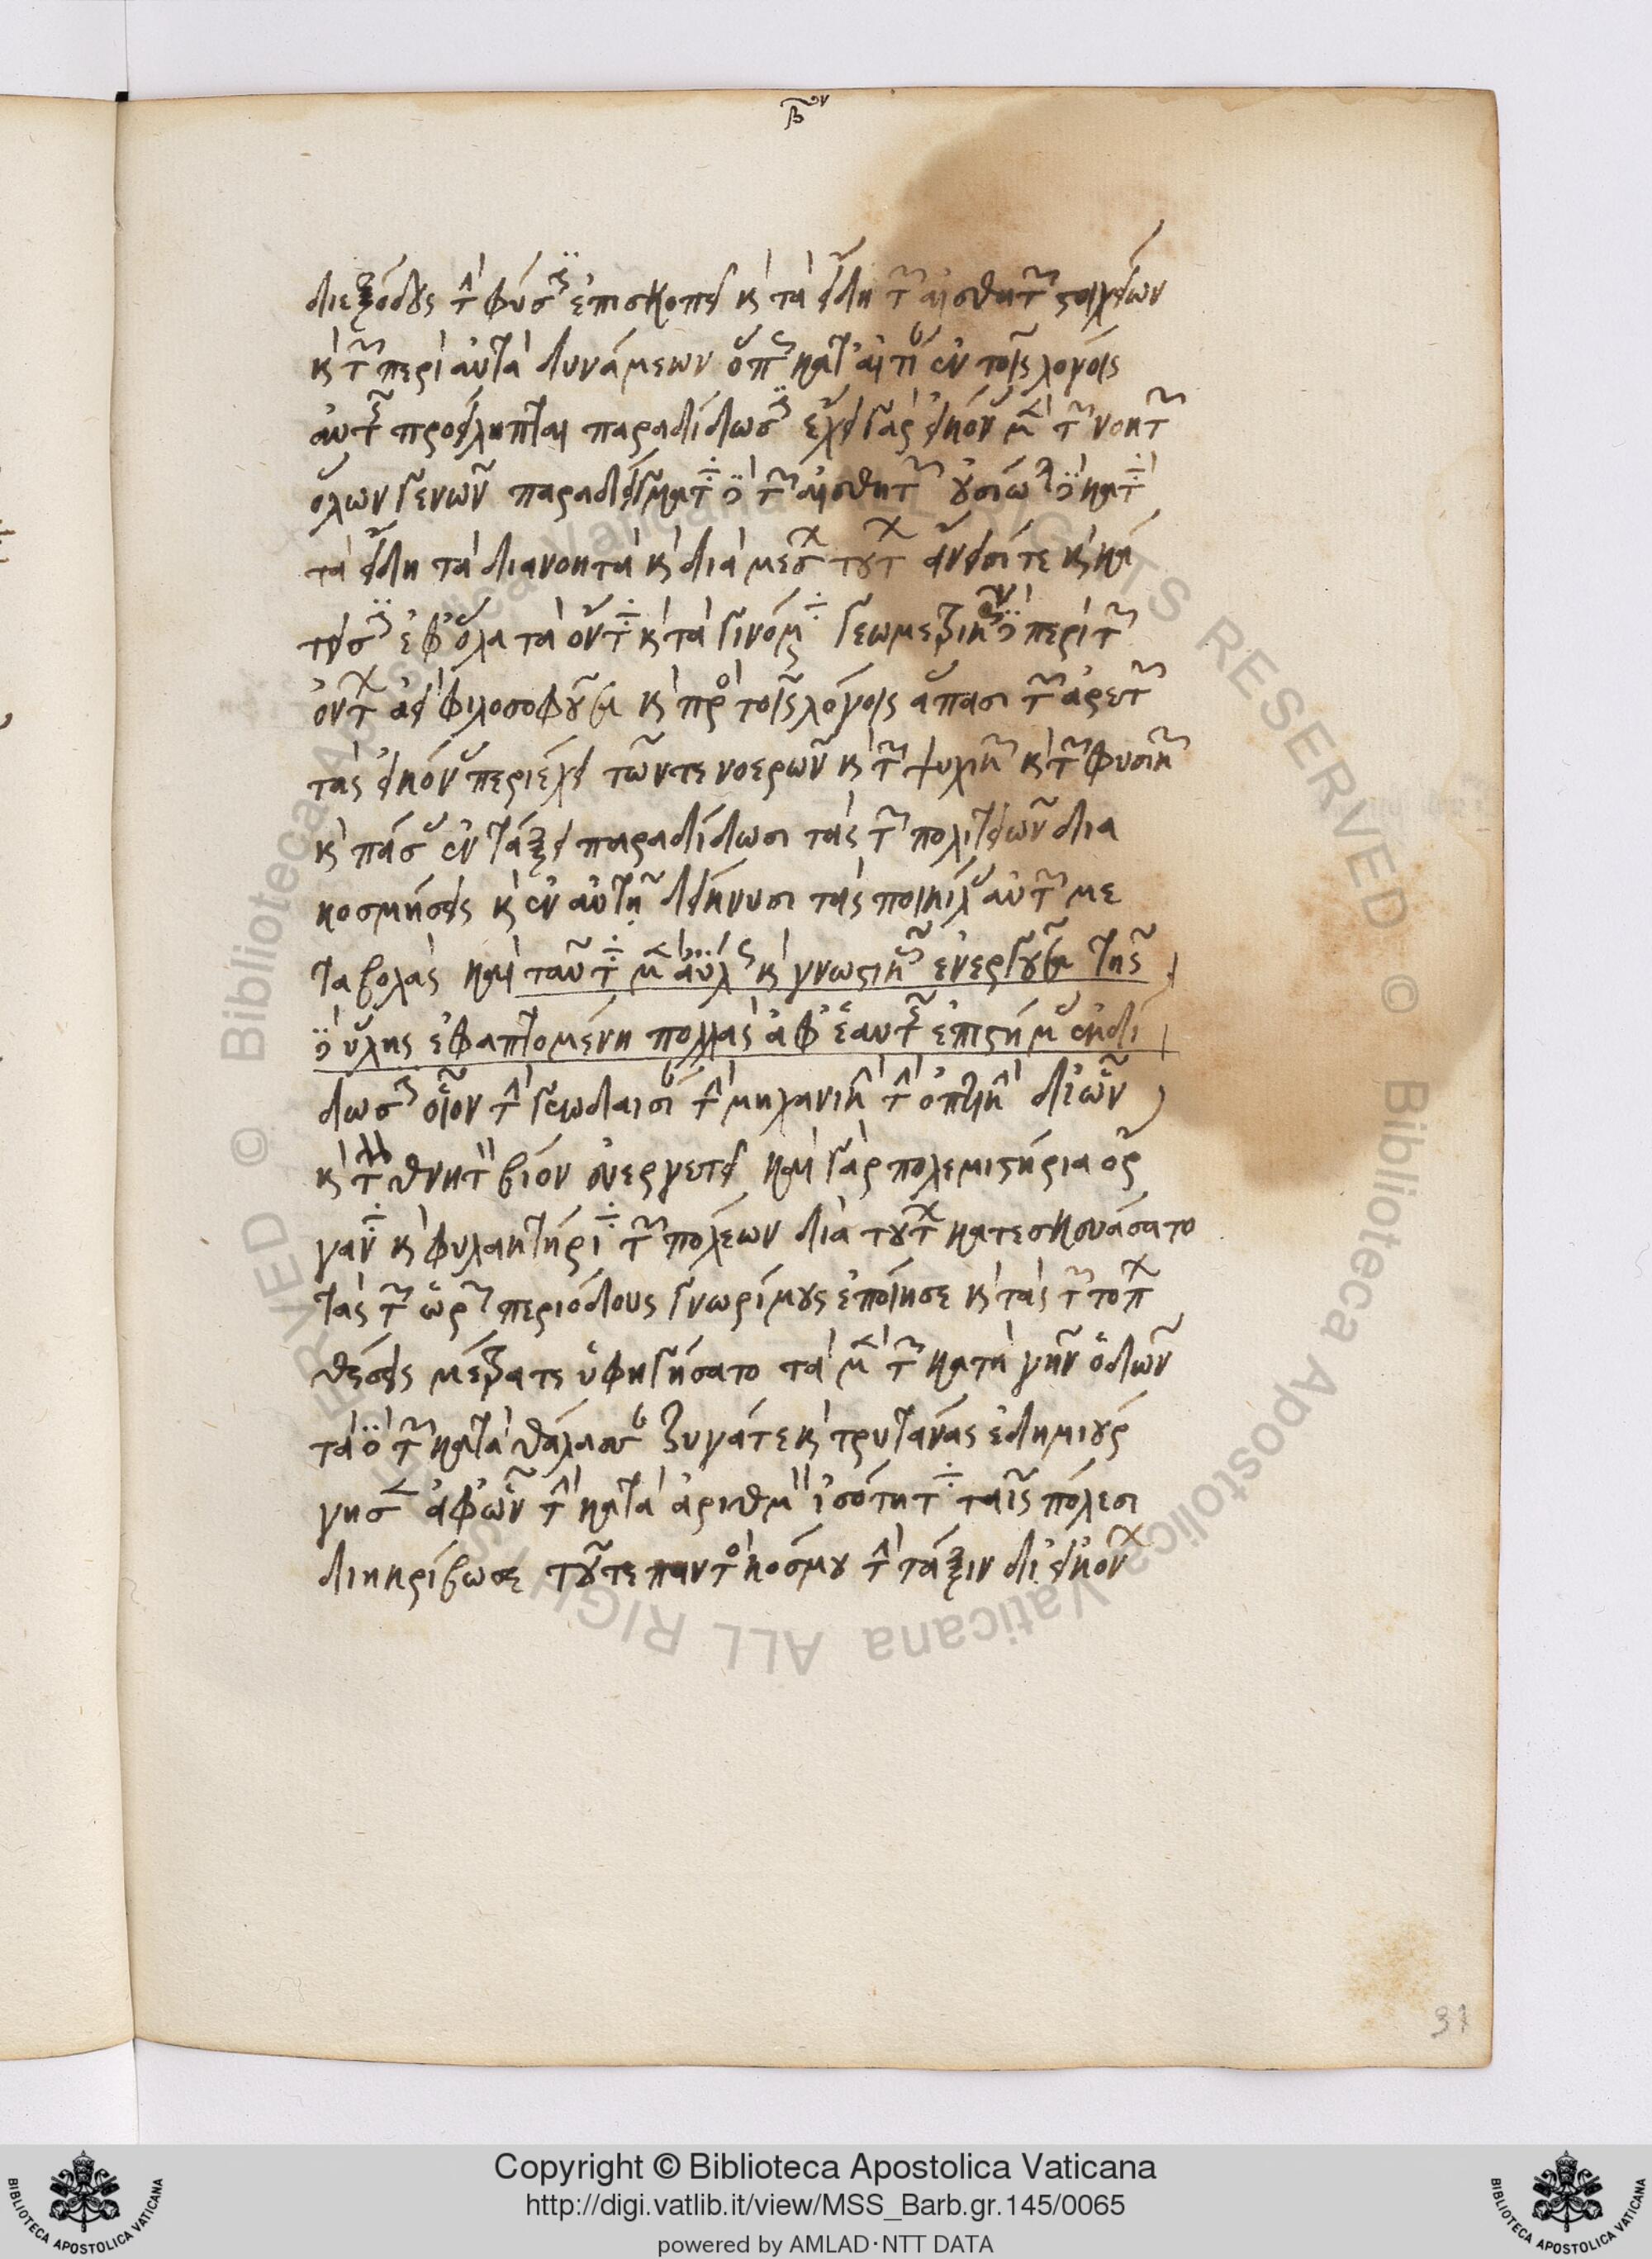 βον
διεξόδους τὴν φύσιν ἐπισκοπεῖ κ τὰ εἴδη τῶν αἰσθητῶν στοιχείων
κ τῶν περὶ αὐτὰ δυνάμεων ὅπως κατ' αἰτίαν ἐν τοῖς λόγοις
αὐτῆς προείληπται παραδίδωσιν ἔχει γὰρ εἰκόνας μὲν τῶν νοητῶν
ὅλων γενῶν παραδείγματα δὲ τῶν αἰσθητῶν οὐσίαν δὲ κατὰ
τὰ εἴδη τὰ διανοητὰ κ διὰ μέσου τούτου ἄνεισί τε κ κά
τεισιν ἐφ' ὅλα τὰ ὄντα κ τὰ γινόμενα γεωμετρικῶς δὲ περὶ τοῦ
ὄντος ἀεὶ φιλοσοφοῦσα κ πρὸς τοῖς λόγοις ἅπασι τῶν ἀρετῶν
τὰς εἰκόνας περιέχει τῶν τε νοερῶν κ τῶν ψυχικῶν κ τῶν φυσικῶν
κ πάσας ἐν τάξει παραδίδωσι τὰς τῶν πολιτειῶν δια
κοσμήσεις κ ἐν αὐτῇ δείκνυσι τὰς ποικίλας αὐτῶν με
ταβολὰς καὶ ταῦτα μὲν ἀύλως κ γνωστικῶς ἐνεργοῦσα τῆς
δὲ ὕλης ἐφαπτομένη πολλὰς ἀφ' ἑαυτῆς ἐπιστήμας ἐκδί
δωσιν οἷον τὴν γεωδαισίαν τὴν μηχανικὴν τὴν ὀπτικὴν δι' ὧν
κ τὸν θνητὸν βίον εὐεργετεῖ καὶ γὰρ πολεμιστήρια ὄρ
γανα κ φυλακτήρια τῶν πόλεων διὰ τούτων κατεσκευάσατο
τὰς τῶν ὡρῶν περιόδους γνωρίμους ἐποίησε κ τὰς τῶν τόπων
θέσεις μέτρα τε ὑφηγήσατο τὰ μὲν τῶν κατὰ γῆν ὁδῶν
τὰ δὲ τῶν κατὰ θάλασσαν ζυγά τε κ τρυτάνας ἐδημιούρ
γησεν ἀφ' ὧν τὴν κατὰ ἀριθμὸν ἰσότητα ταῖς πόλεσι
διηκρίβωσε τοῦ τε παντὸς κόσμου τὴν τάξιν δι' εἰκόνων
31
Copyright © Biblioteca Apostolica Vaticana
http://digi.vatlib.it/view/MSS_Barb.gr.145/0065
powered by AMLAD·NTT DATA